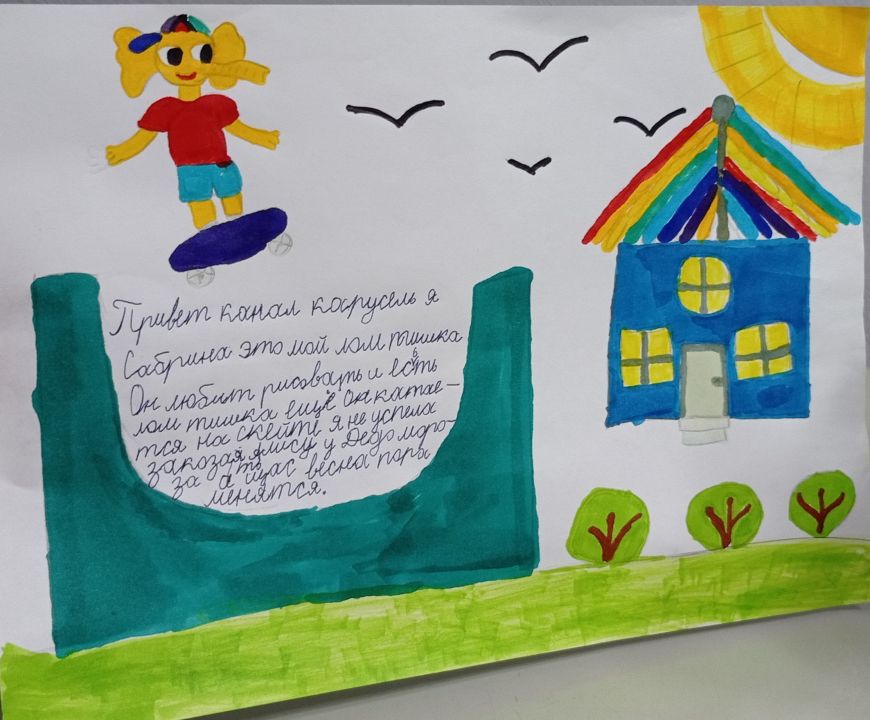 Привет канал карусель я
Сабрина это мой лом тышка
Он любит рисовать и есть
лом тишка ещё он катае-
тся на скейте я не успела
заказая лису у Дедо моро-
за а то щас весна пора
менятся.